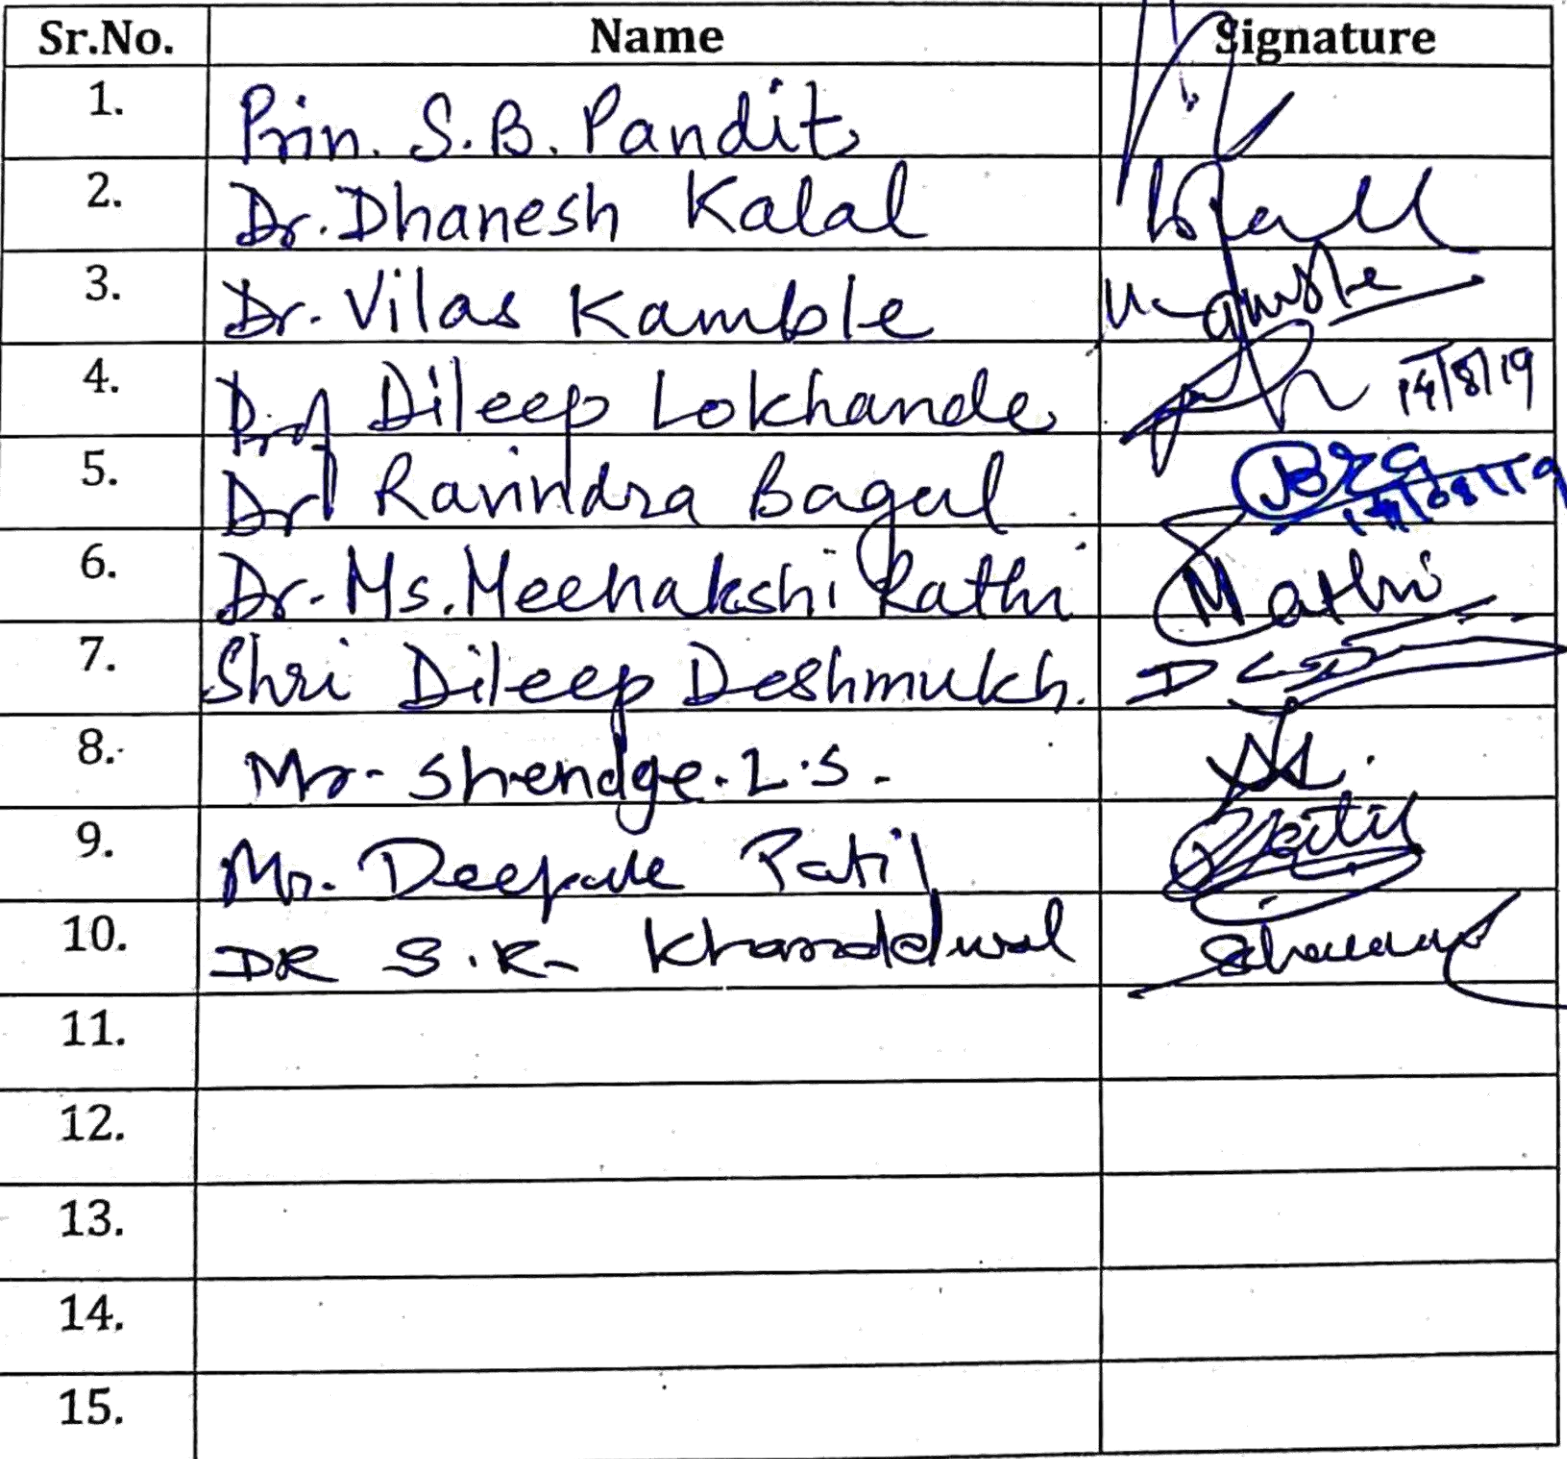 Sr.No. Name Signature
1. Prin. S.B. Pandit
2. Dr. Dhanesh Kalal
3. Dr. Vilas Kamble
4. Prof Dileep Lokhande 14/8/19
5. Dr Ravindra Bagul
6. Dr. Ms. Meenakshi Rathi Mathi
7. Shri Dileep Deshmukh.
8. Mr. Shendge. L.S.
9. Mr. Deepak Patil Patil
10. DR S.R. Khandelwal
11.
12.
13.
14.
15.